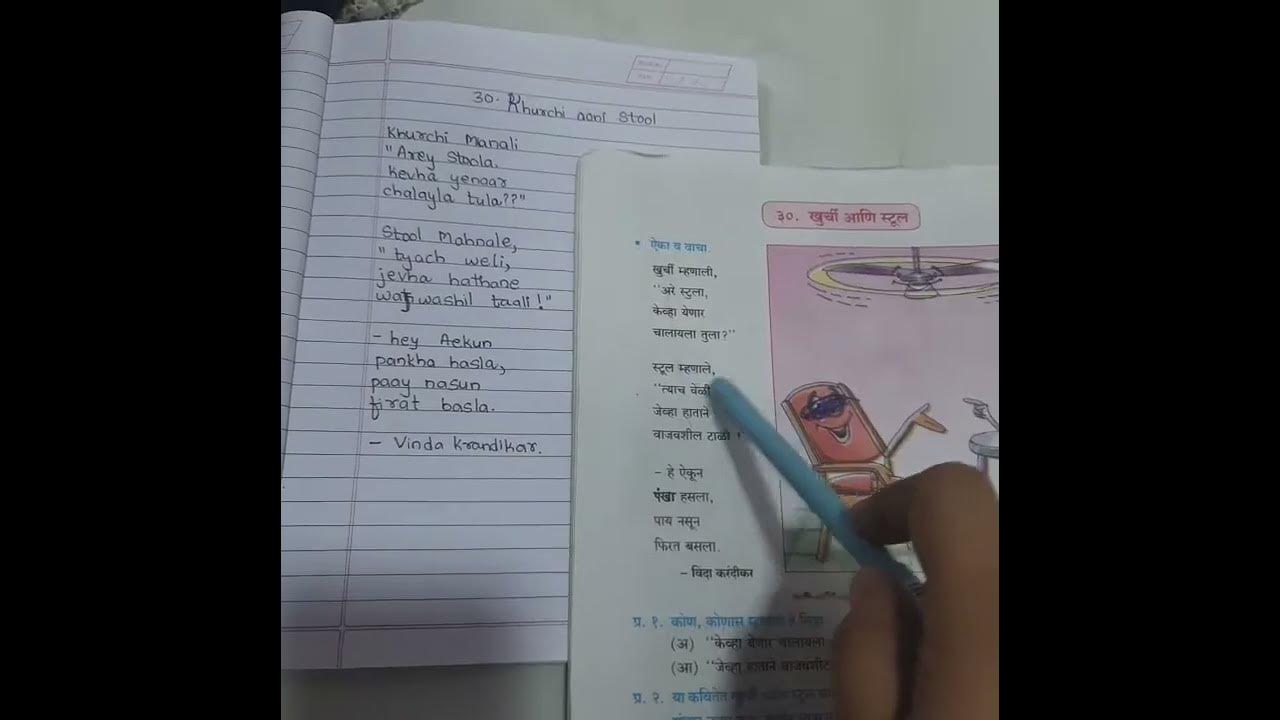 30. Khurchi aani Stool
Khurchi Manali
"Arey Stoola.
kevha yenaar
chalayla tula??"
Stool Mahnale,
"tyach weli,
jevha hathane
wajwashil taali!"
- hey Aekun
pankha hasla,
paay nasun
firat basla.
- Vinda Krandikar.
३०. खुर्ची आणि स्टूल
• ऐका व वाचा.
खुर्ची म्हणाली,
"अरे स्टुला,
केव्हा येणार
चालायला तुला?"
स्टूल म्हणाले,
"त्याच वेळी
जेव्हा हाताने
वाजवशील टाळी !
- हे ऐकून
पंखा हसला,
पाय नसून
फिरत बसला.
- विंदा करंदीकर
प्र. १. कोण, कोणास
(अ) "केव्हा येणार चालायला
(आ) "जेव्हा हाताने वाजवशील
प्र. २. या कवितेत